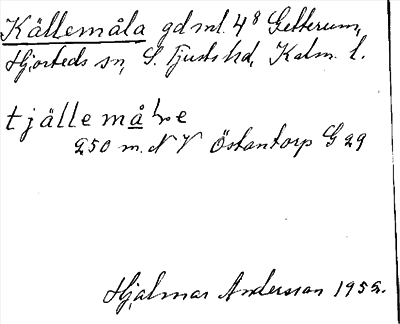 Källemåla gdml. 4⁸ Getterum,
Hjorteds sn, S. Tjusts hd, Kalm. l.
tjällemåɫe
250 m. NV Östantorp G 29
Hjalmar Andersson 1952.